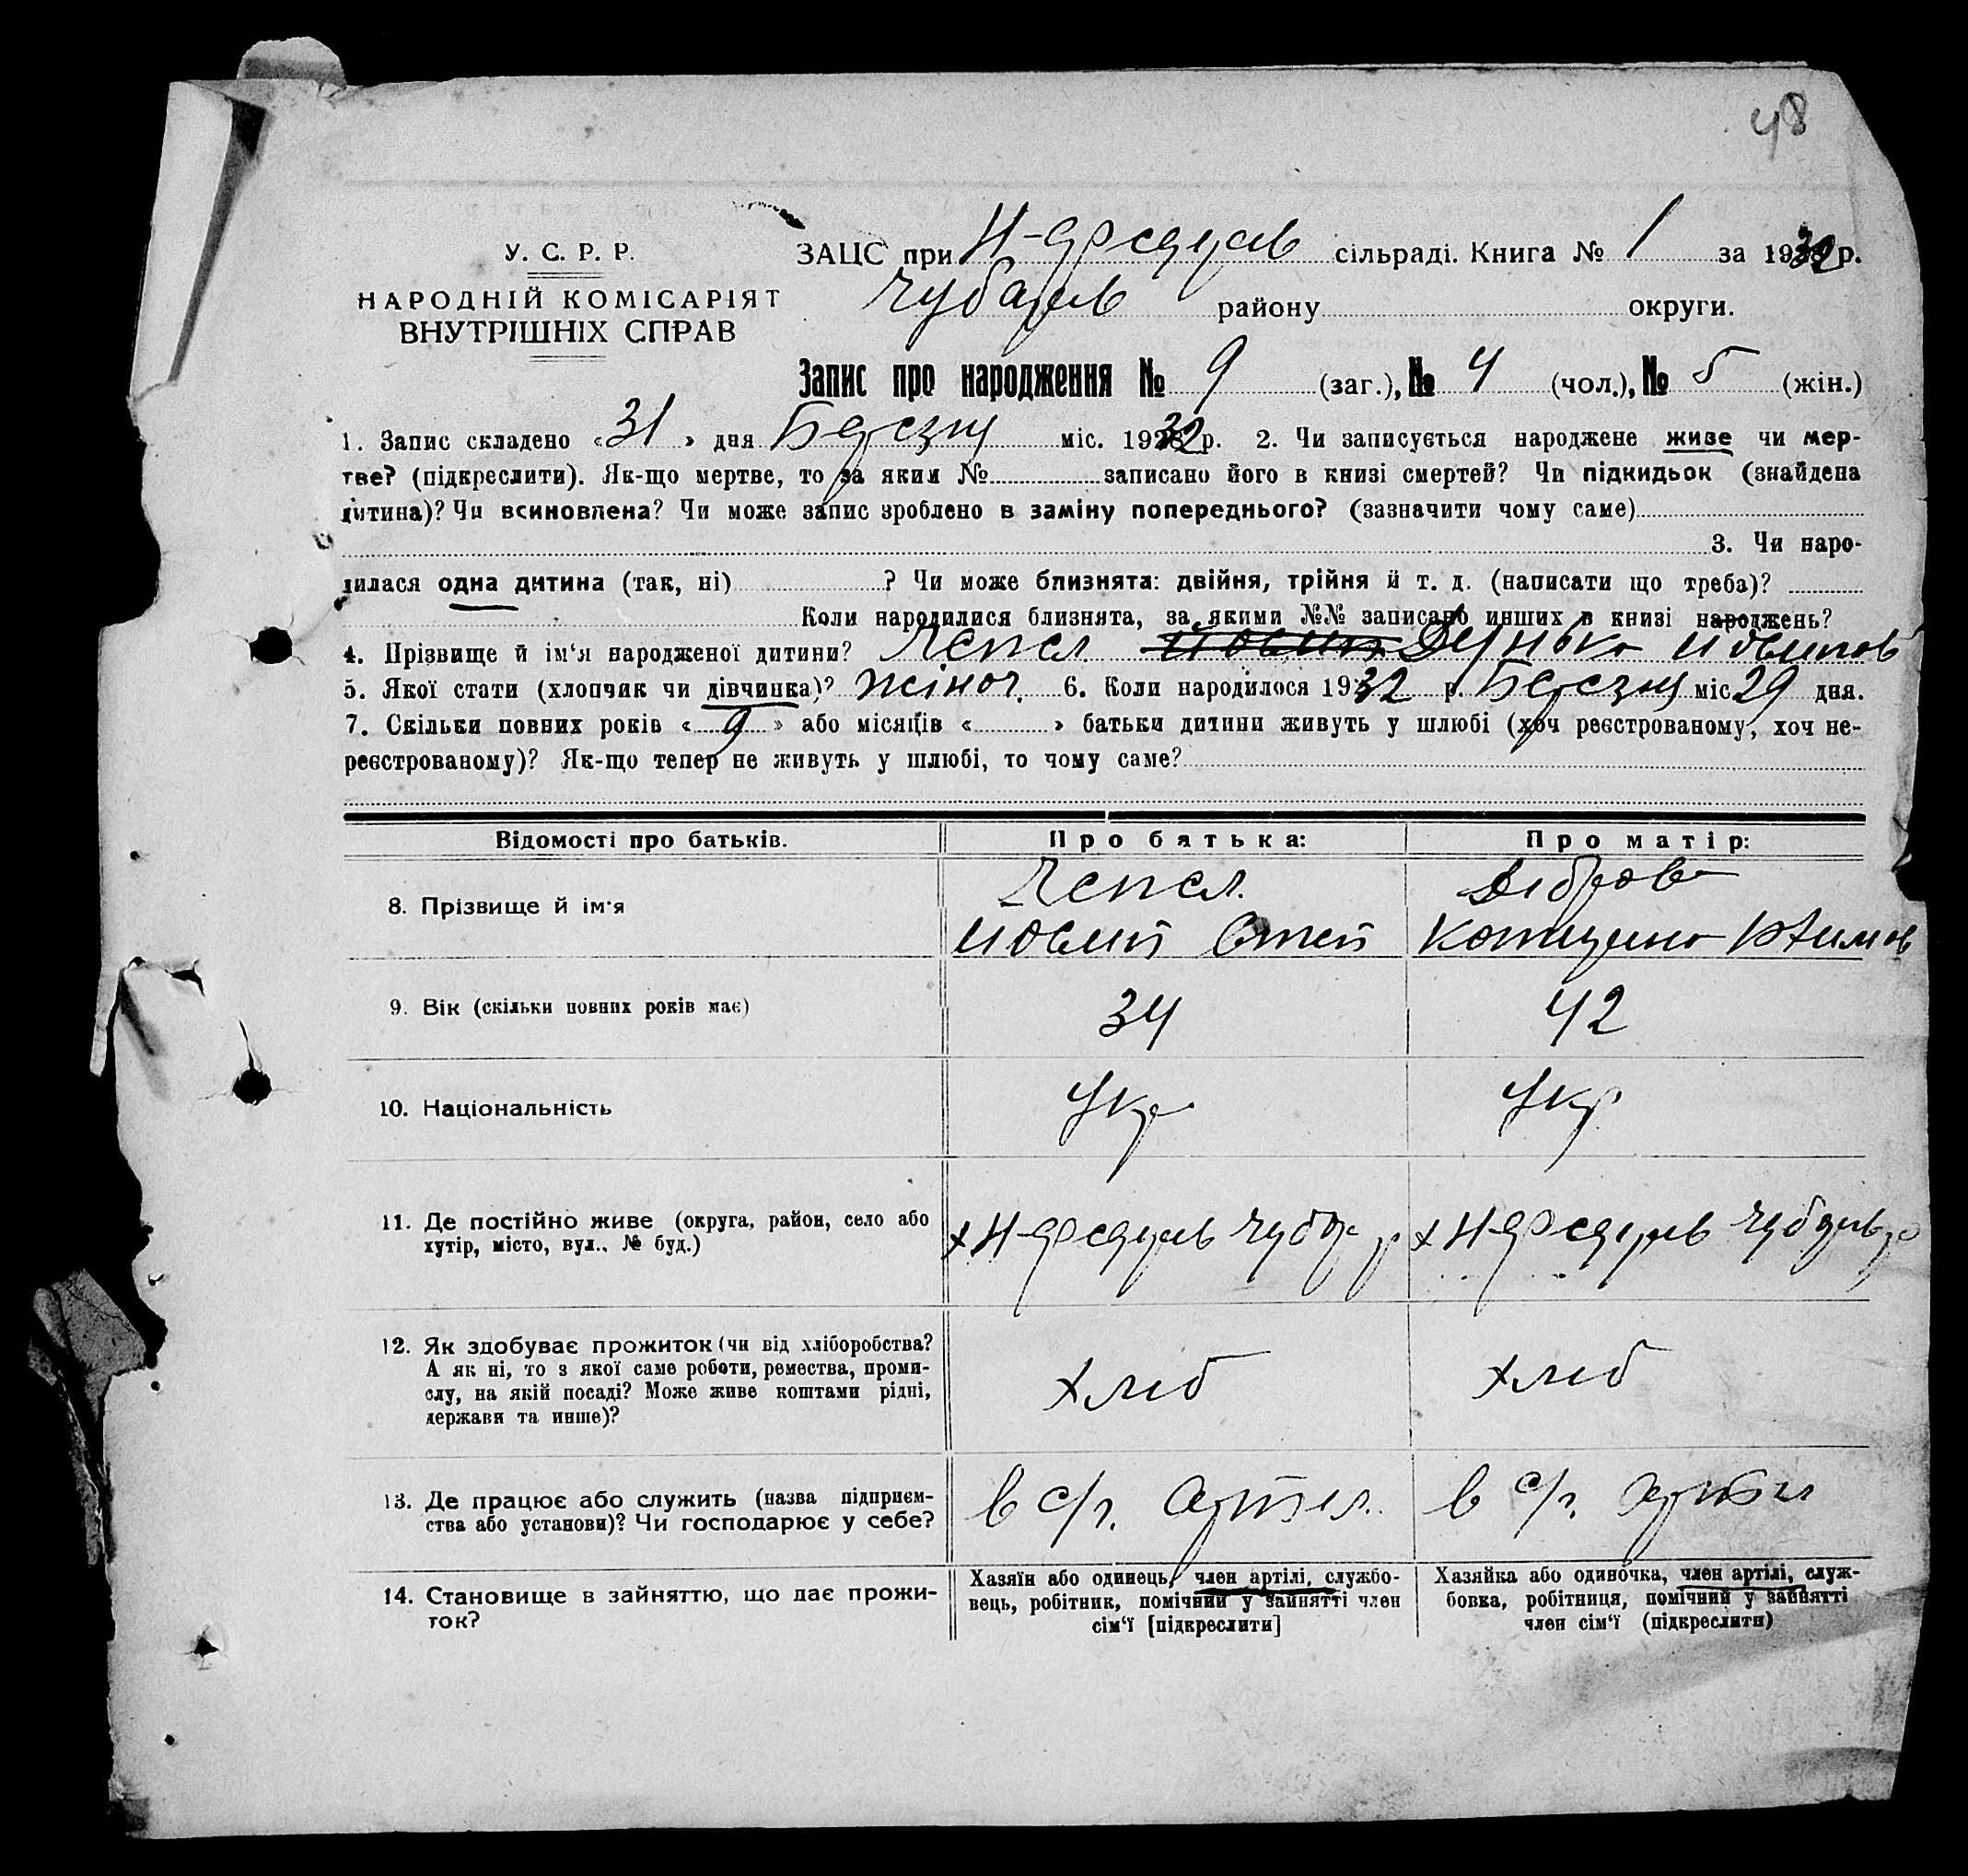 48
У. С. Р. Р.
НАРОДНІЙ КОМІСАРІЯТ
ВНУТРІШНІХ СПРАВ
ЗАЦС при Н-Федорів сільраді. Книга № 1 за 1932 р.
Чубарів району округи.
Запис про народження № 9 (заг.), № 4 (чол.), № 5 (жін.)
1. Запис складено « 31 » дня Березня міс. 1932 р. 2. Чи записується народжене живе чи мер-
тве? (підкреслити). Як-що мертве, то за яким № записано його в книзі смертей? Чи підкидьок (знайдена
дитина)? Чи всиновлена? Чи може запис зроблено в заміну попереднього? (зазначити чому саме)
3. Чи наро-
дилася одна дитина (так, ні) ? Чи може близнята: двійня, трійня й т. д. (написати що треба)?
Коли народилися близнята, за якими №№ записано инших в книзі народжень?
4. Прізвище й ім‘я народженої дитини? Лепел.
5. Якої стати (хлопчик чи дівчинка)? жіноч. 6. Коли народилося 1932 р. Березня міс 29 дня.
7. Скільки повних років « 9 » або місяців « » батьки дитини живуть у шлюбі (хоч реєстрованому, хоч не-
реєстрованому)? Як-що тепер не живуть у шлюбі, то чому саме?
Відомості про батьків. Про батька: Про матір:
8. Прізвище й ім‘я Лепел. Діброва
9. Вік (скільки повних років має) 34 42
10. Національність Укр Укр
11. Де постійно живе (округа, район, село або х Н-Федорів Чубар р х Н-Федорів Чубарів р
хутір, місто, вул., № буд.)
12. Як здобуває прожиток (чи від хліборобства? хліб хліб
А як ні, то з якої саме роботи, ремества, проми-
слу, на якій посаді? Може живе коштами рідні,
держави та инше)?
13. Де працює або служить (назва підприєм- в с/г. артіл. в с/г. артіл
ства або установи)? Чи господарює у себе?
14. Становище в зайняттю, що дає прожи-
ток?
Хазяїн або одинець, член артілі, службо-
вець, робітник, помічний у зайнятті член
сім‘ї [підкреслити]
Хазяйка або одиночка, член артілі, служ-
бовка, робітниця, помічний у зайнятті
член сім‘ї (підкреслити)